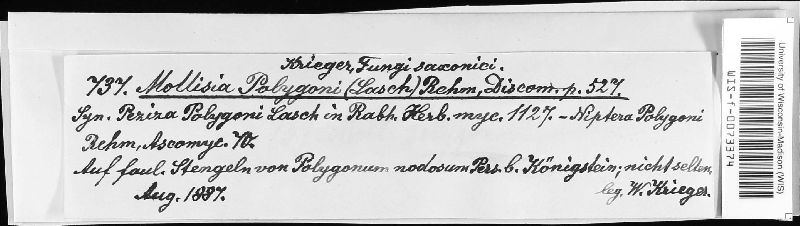 Krieger, Fungi saxonici.
737. Mollisia Polygoni (Lasch) Rehm, Discom. p. 527.
Syn. Peziza Polygoni Lasch in Rabh. Herb. myc. 1127. – Niptera Polygoni
Rehm, Ascomyc. 70.
Auf faul. Stengeln von Polygonum nodosum Pers. b. Königstein; nicht selten.
Aug. 1887.
leg. W. Krieger.
University of Wisconsin-Madison (WIS)
WIS-f-0073374